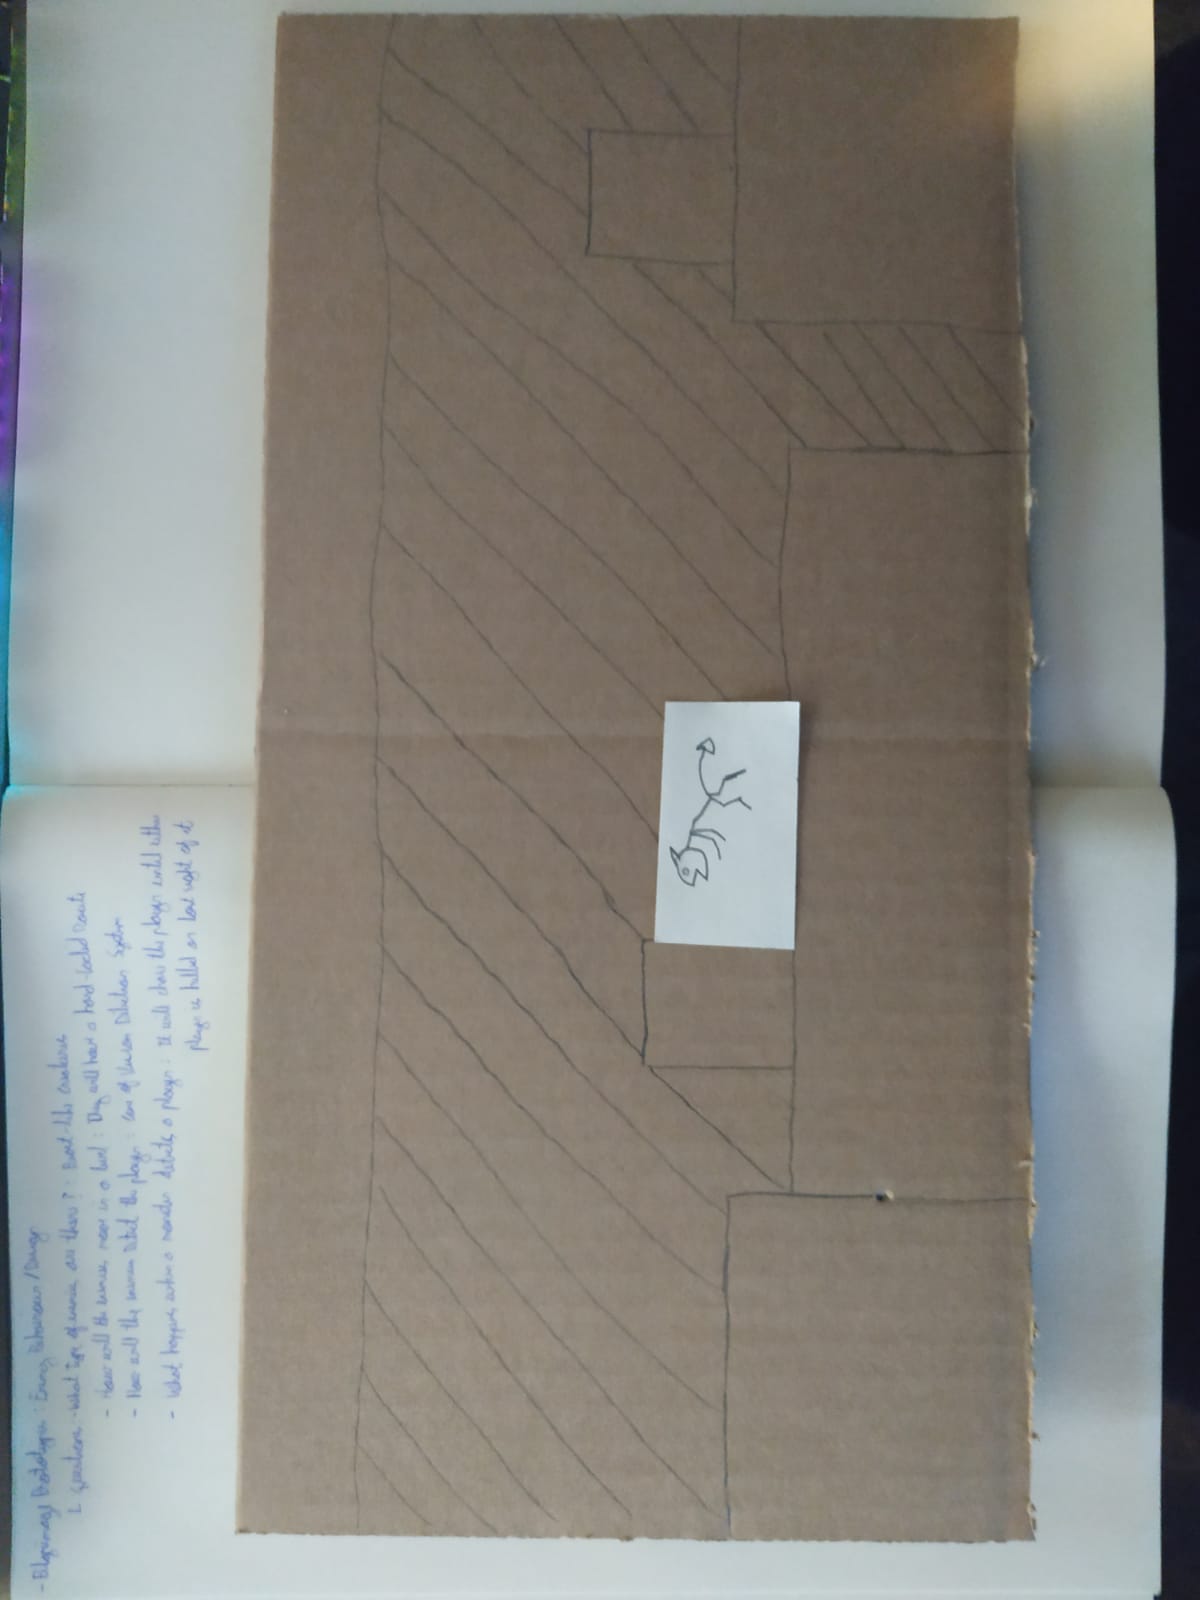 - Pilgrimage Prototype : Enemy Behaviour / Design
1. Questions - What type of enemies are there? : Beast-like Creatures
- How will the enemies move in a level : They will have a hard-locked Route
- How will the enemies Detect the player : Cone of Vision Detection System
- What happens when a monster detects a player : It will chase the player until either
player is killed or lost sight of it